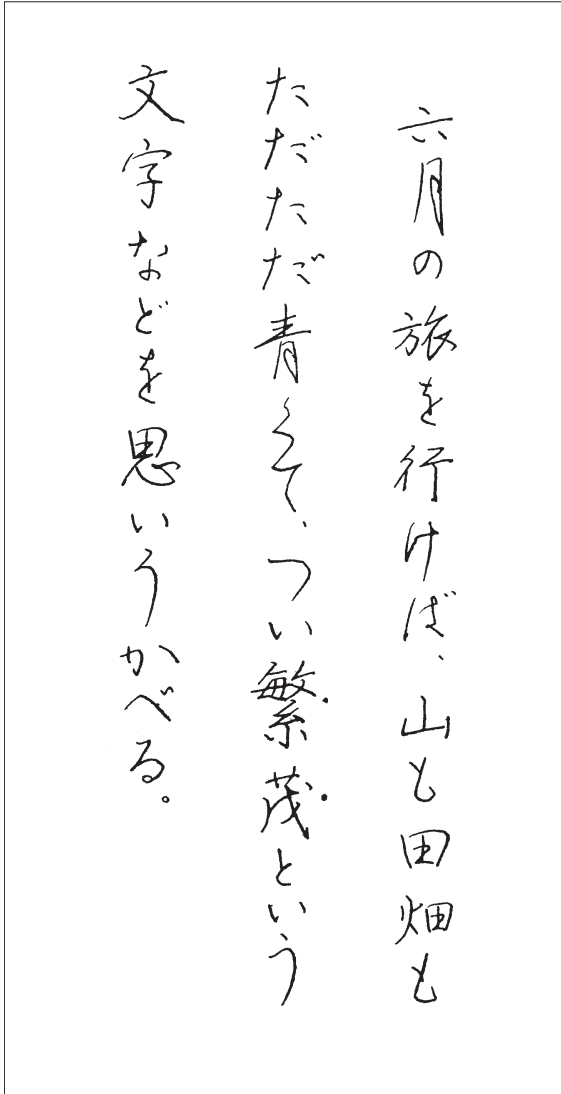 六月の旅を行けば、山も田畑も
ただただ青くて、つい繁茂という
文字などを思いうかべる。